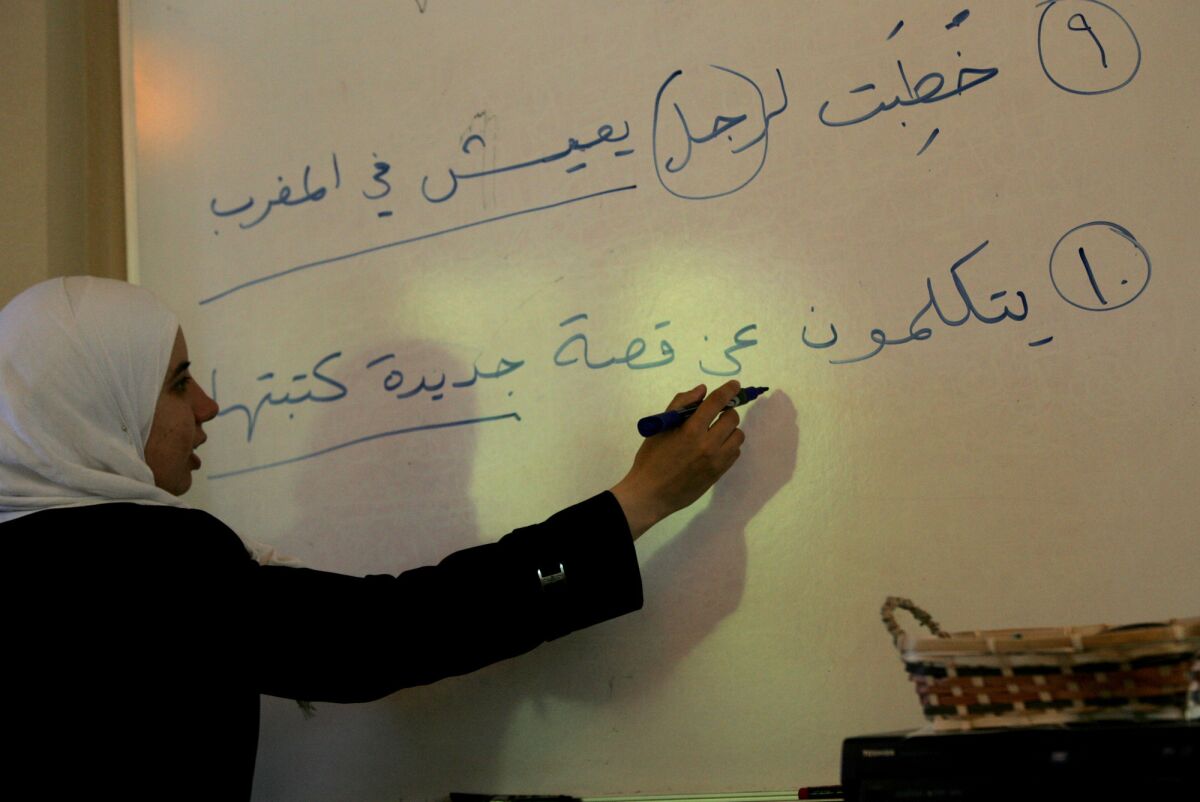 ٩ خُطِبَت لرجل يعيش في المغرب
١٠ يتكلمون عن قصة جديدة كتبتها
TOSHIBA